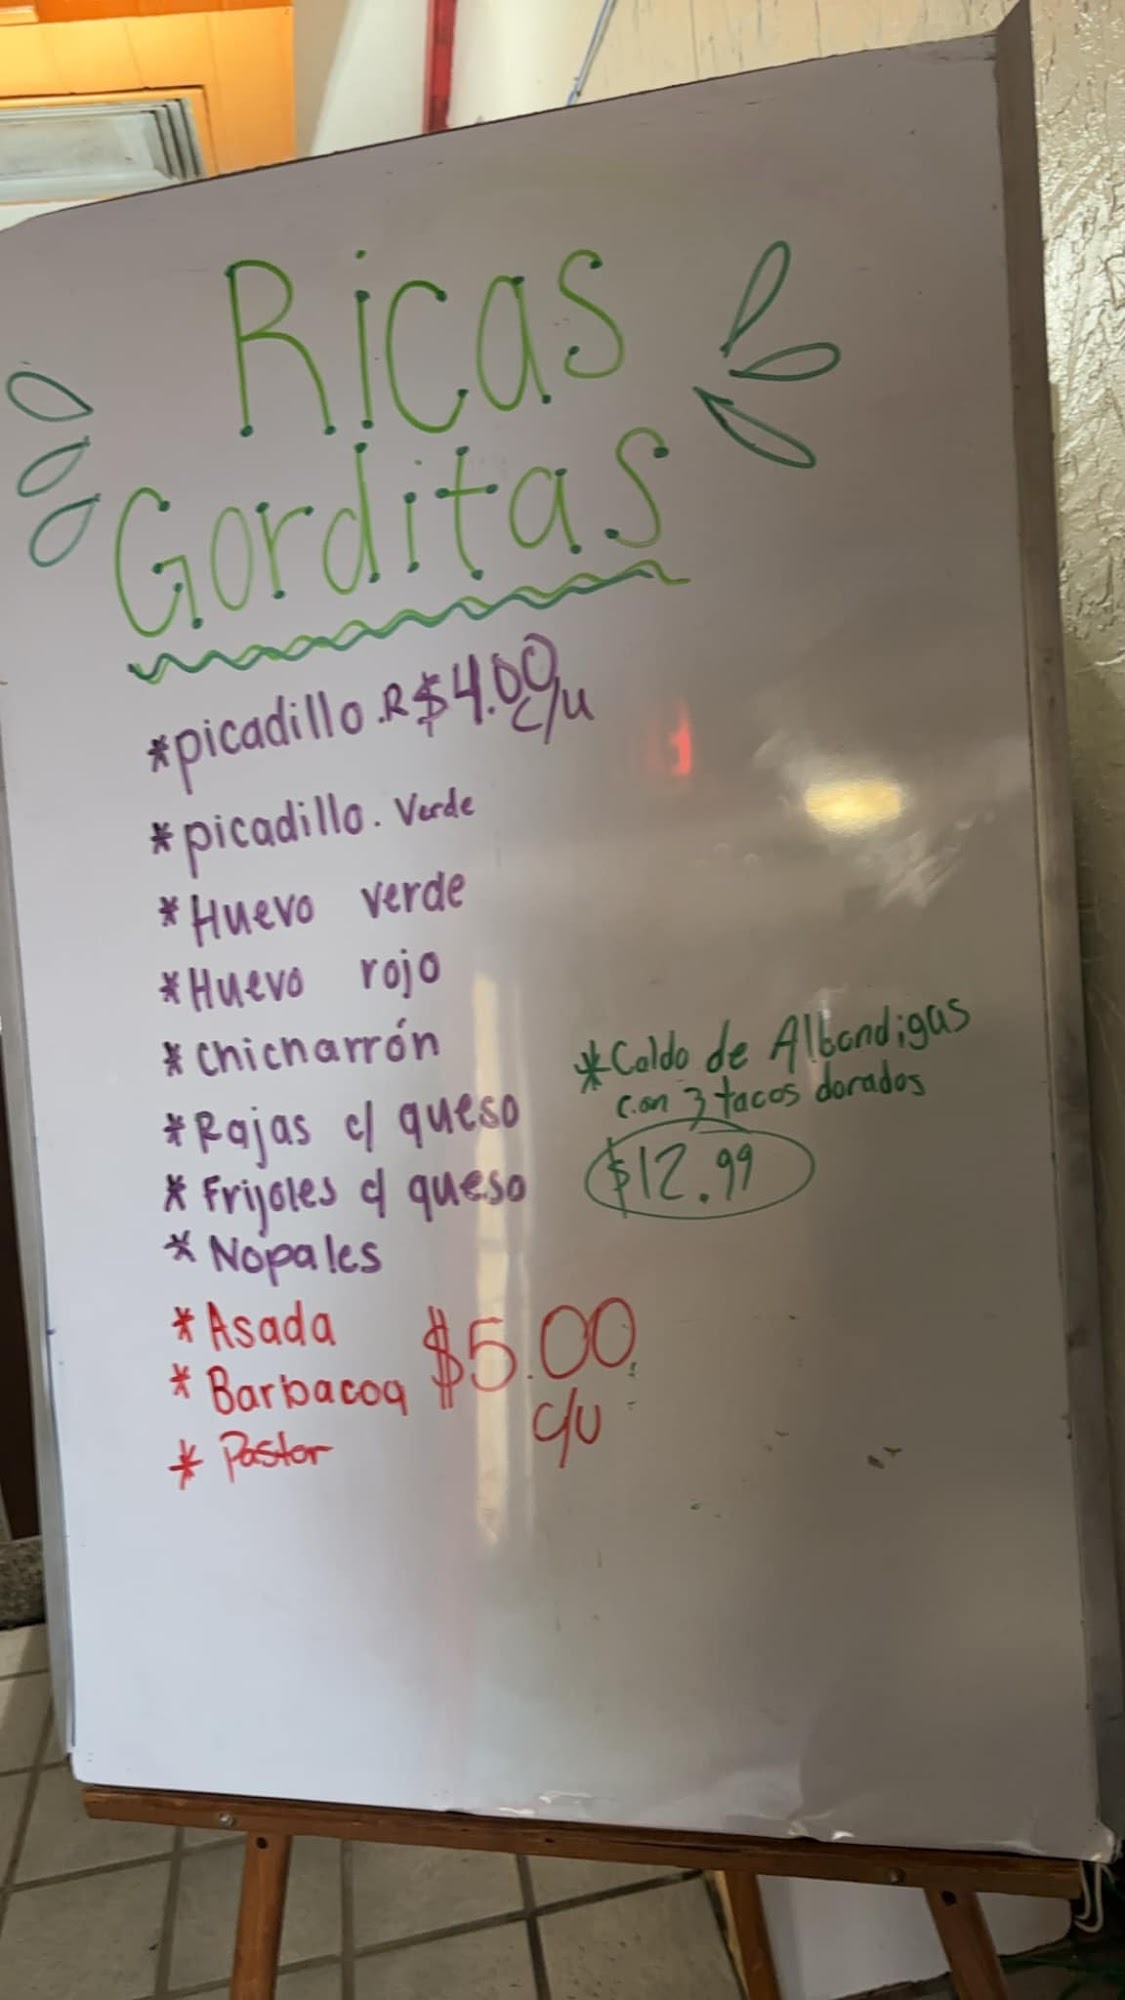 Ricas
Gorditas
*picadillo.R $4.00
c/u
*picadillo. Verde
*Huevo verde
*Huevo rojo
*chicharrón
*Rajas c/ queso
*Frijoles c/ queso
*Nopales
*Caldo de Albondigas
con 3 tacos dorados
$12.99
*Asada
*Barbacoa $5.00
c/u
*Pastor